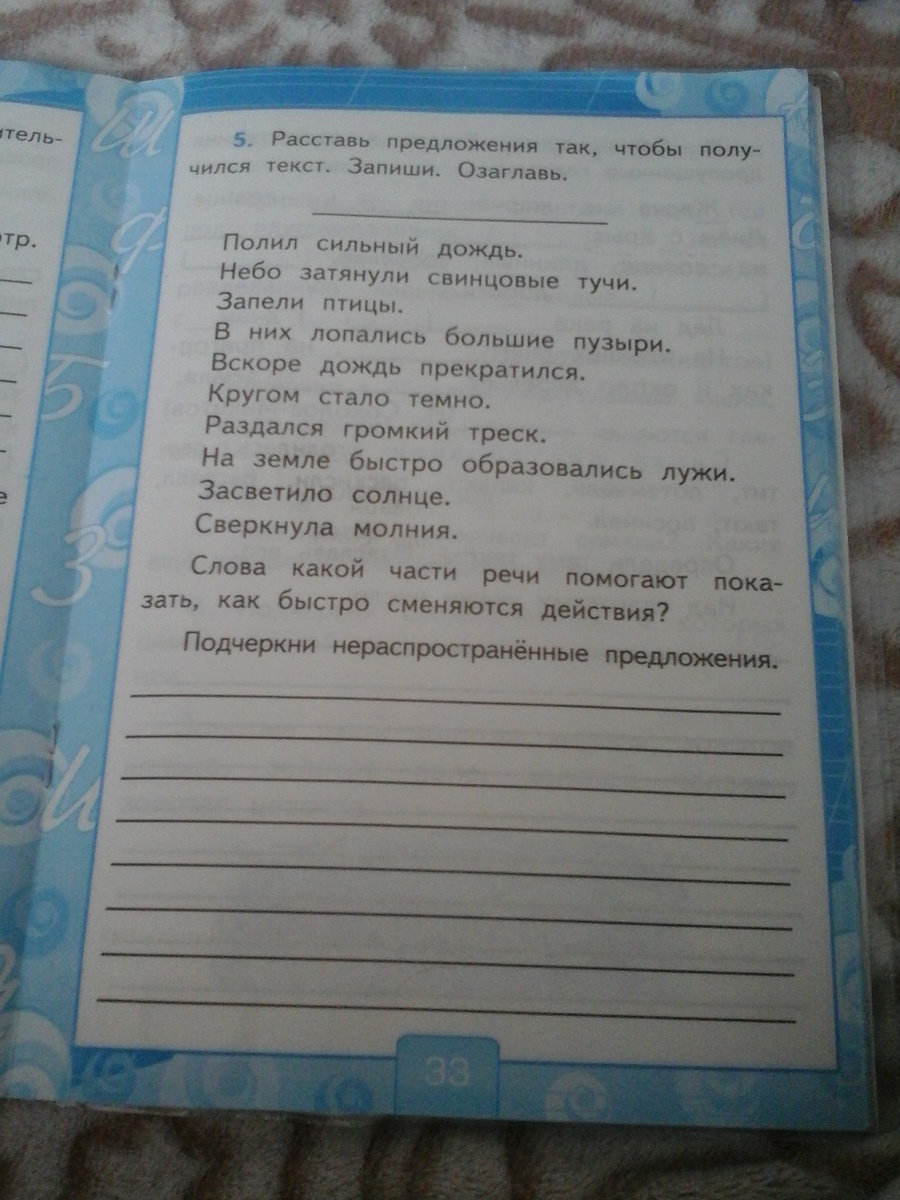 итель-
отр.
е
5. Расставь предложения так, чтобы полу-
чился текст. Запиши. Озаглавь.
Полил сильный дождь.
Небо затянули свинцовые тучи.
Запели птицы.
В них лопались большие пузыри.
Вскоре дождь прекратился.
Кругом стало темно.
Раздался громкий треск.
На земле быстро образовались лужи.
Засветило солнце.
Сверкнула молния.
Слова какой части речи помогают пока-
зать, как быстро сменяются действия?
Подчеркни нераспространённые предложения.
33